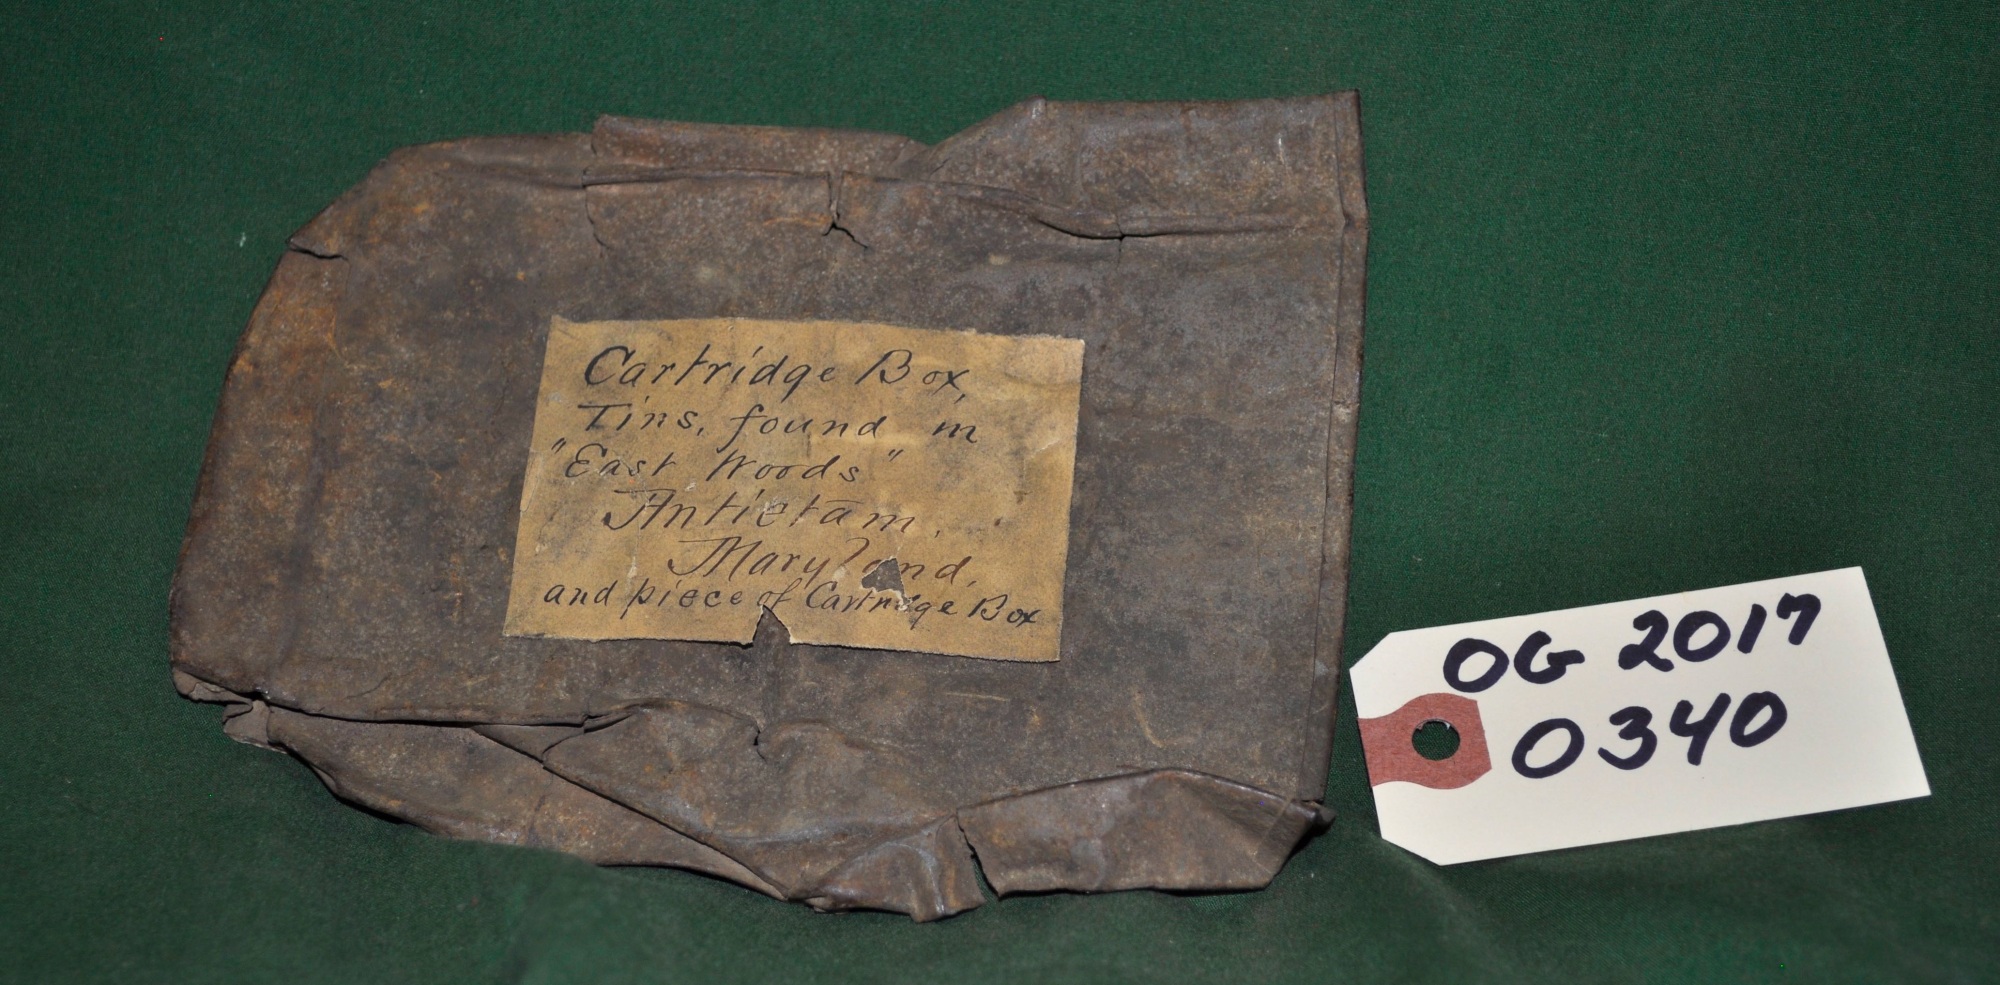 Cartridge Box,
Tins, found in
"East Woods"
Antietam,
Maryland,
and piece of Cartridge Box
OG 2017
0340